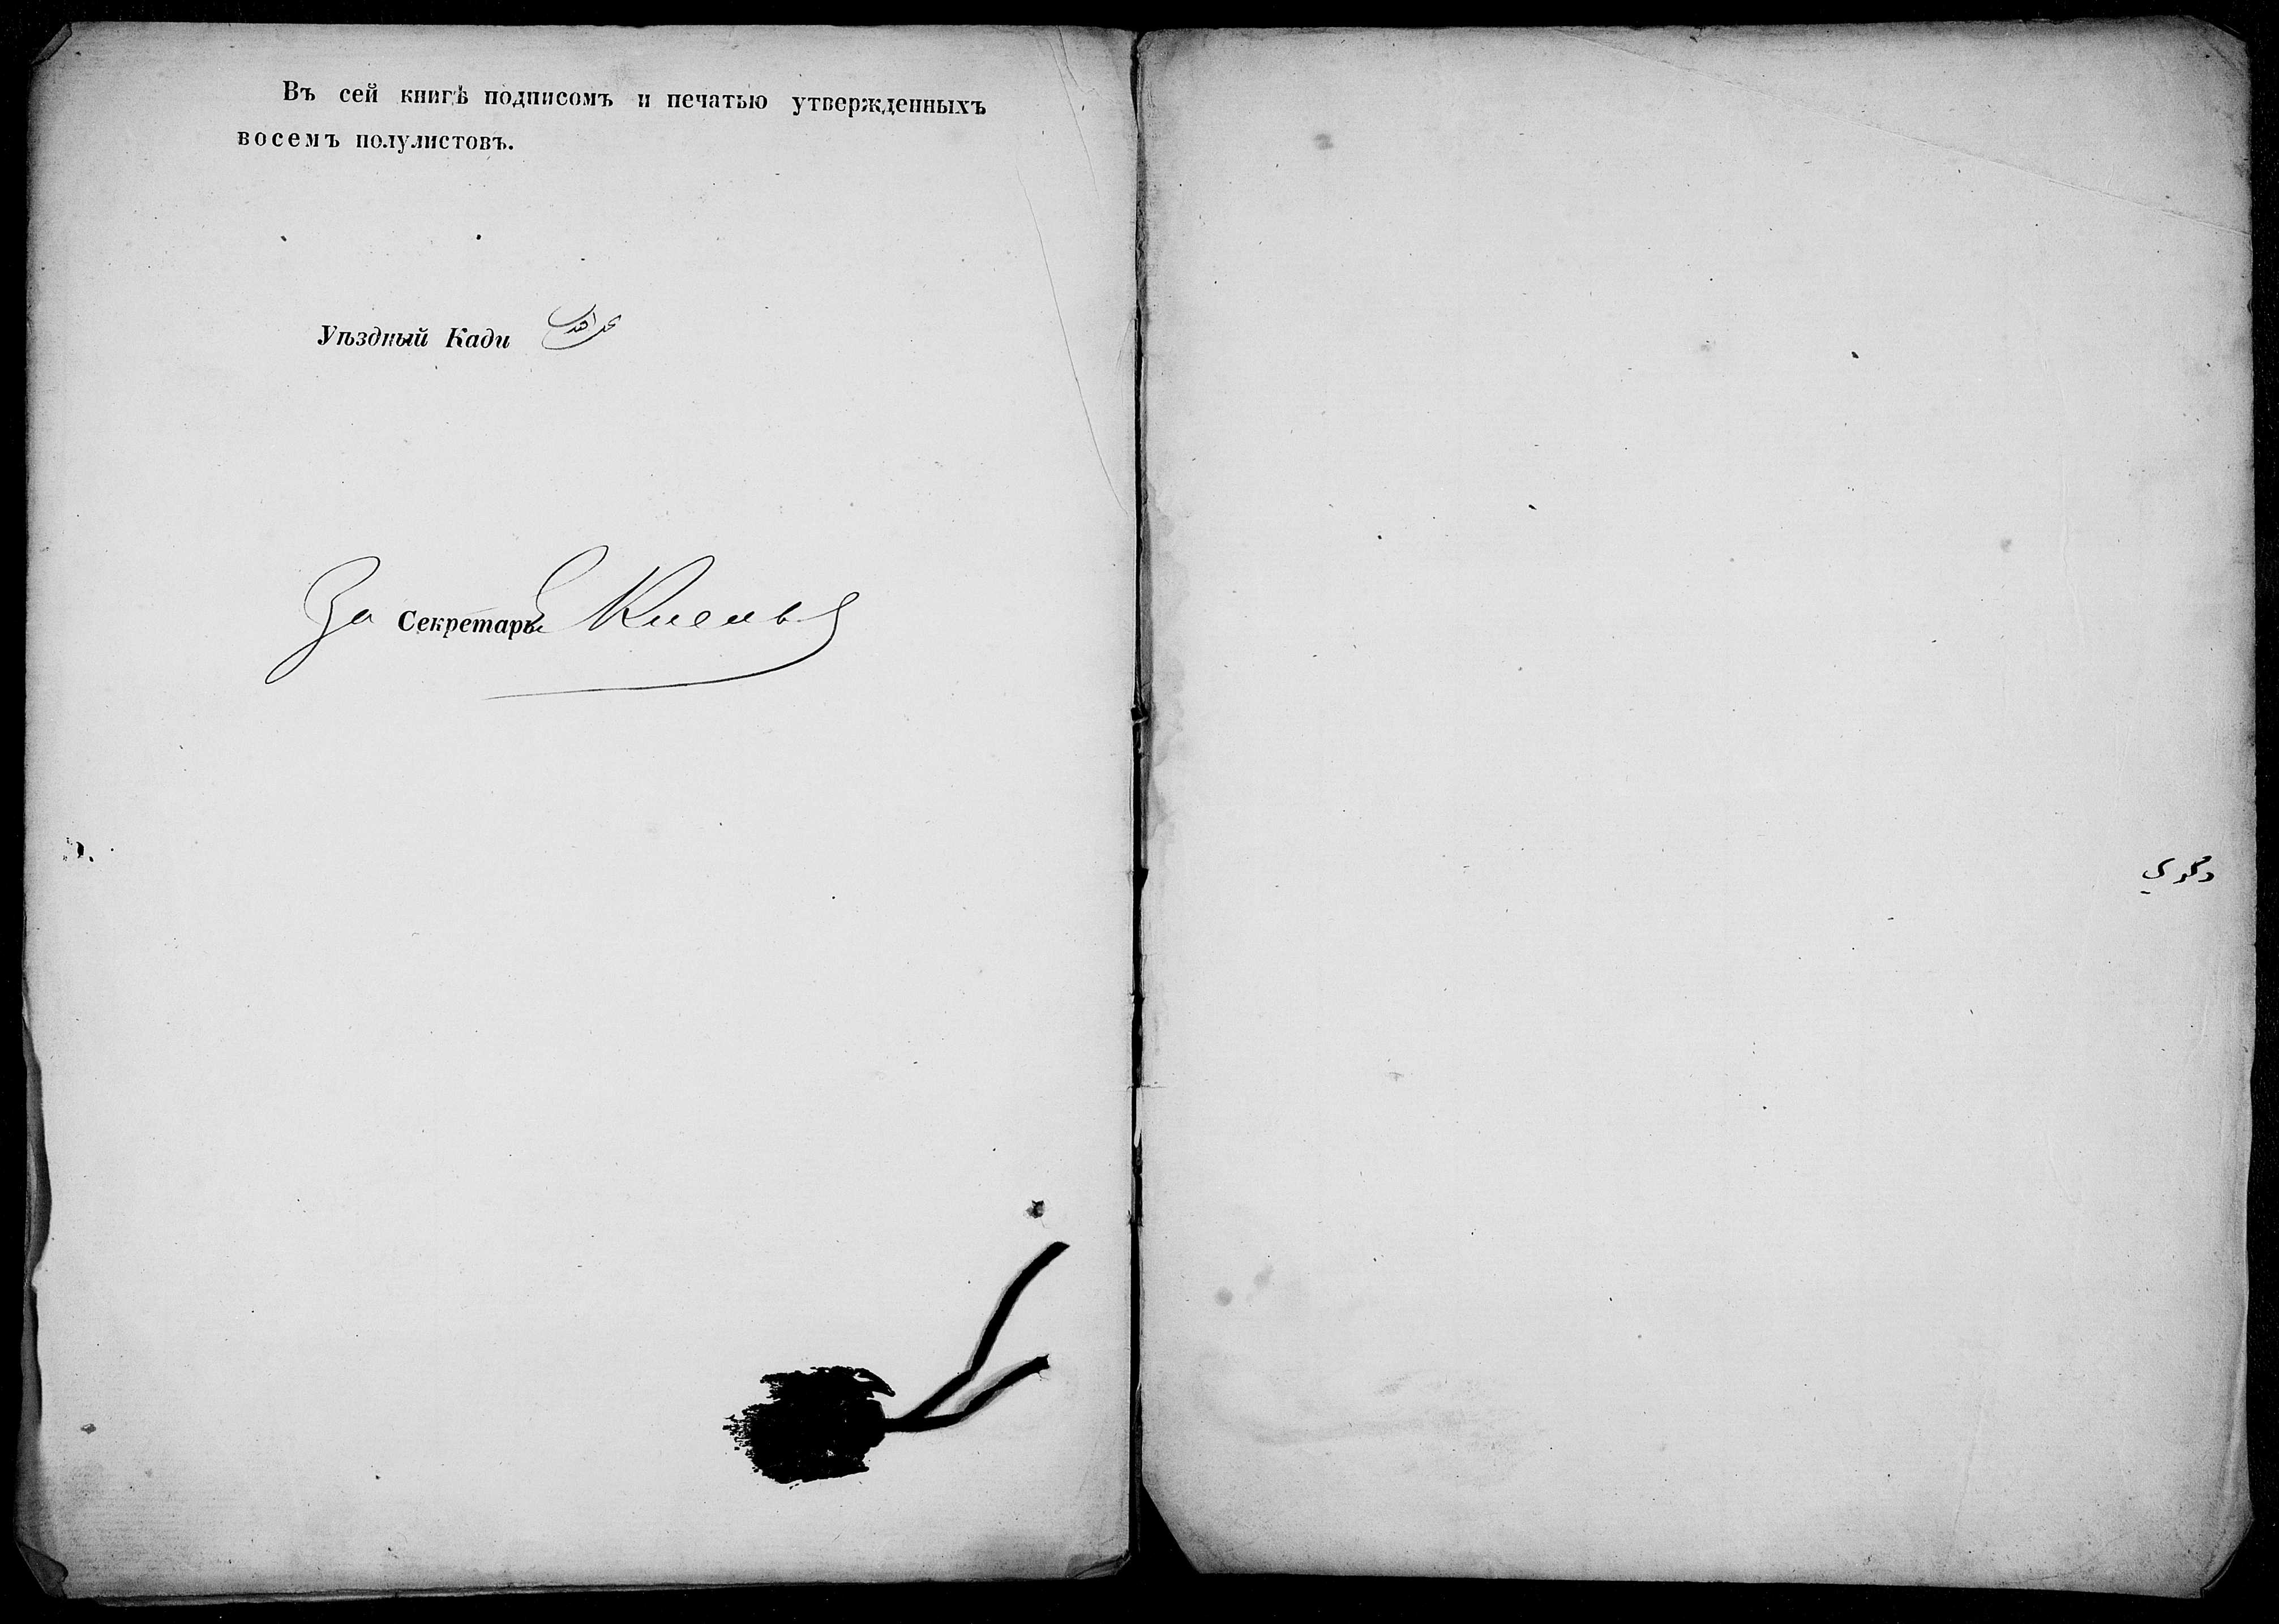 Въ сей книгѣ подписомъ и печатью утвержденныхъ
восемъ полулистовъ.
Уѣздный Кади
За Секретаръ